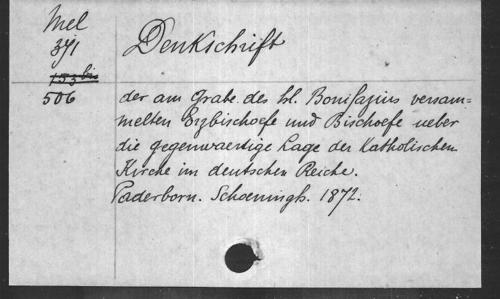 Mel
371
153 bis
506
Denkschrift
der am Grabe des hl. Bonifazius versam-
melten Erzbischoefe und Bischoefe ueber
die gegenwaertige Lage der Katholischen
Kirche im deutschen Reiche.
Paderborn. Schoeningh. 1872.